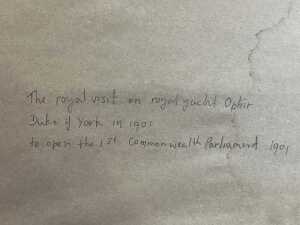 The royal visit on royal yacht Ophir
Duke of York in 1901
to open the 1st Commonwealth Parliament 1901